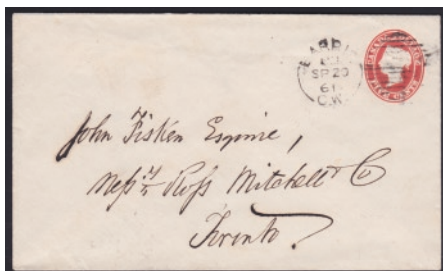 BARRIE
SP 20
61
C.W.
CANADA POSTAGE
FIVE CENTS
John Fisken Esquire,
Mess.rs Ross Mitchell & Co
Toronto